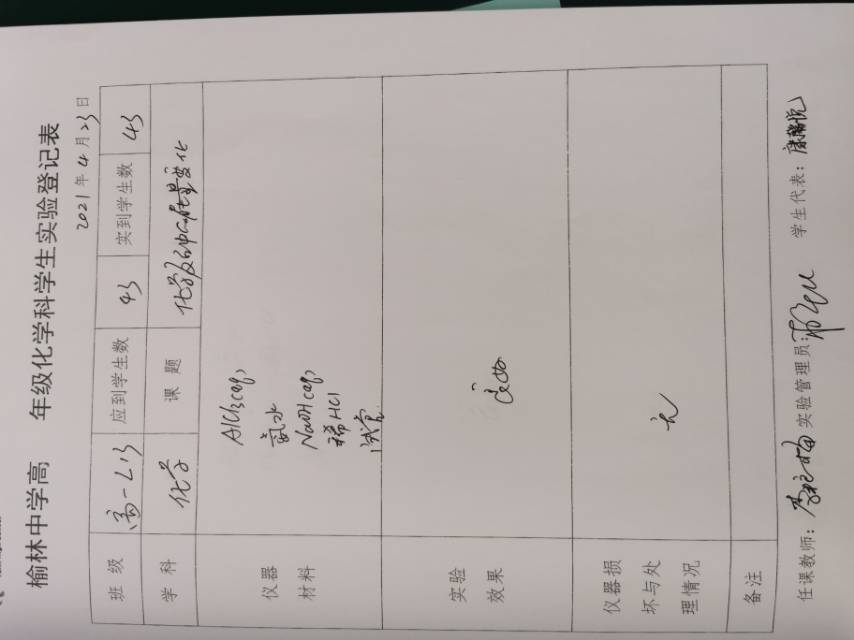 榆林中学高 年级化学科学生实验登记表
2021年4月23日
班级 高一(13) 应到学生数 43 实到学生数 43
学科 化学 课题 化学反应中的能量变化
仪器
材料
AlCl3(aq),
氨水
NaOH(aq),
稀HCl
试管
实验
效果
良好
仪器损
坏与处
理情况
无
备注
任课教师: 实验管理员: 学生代表: